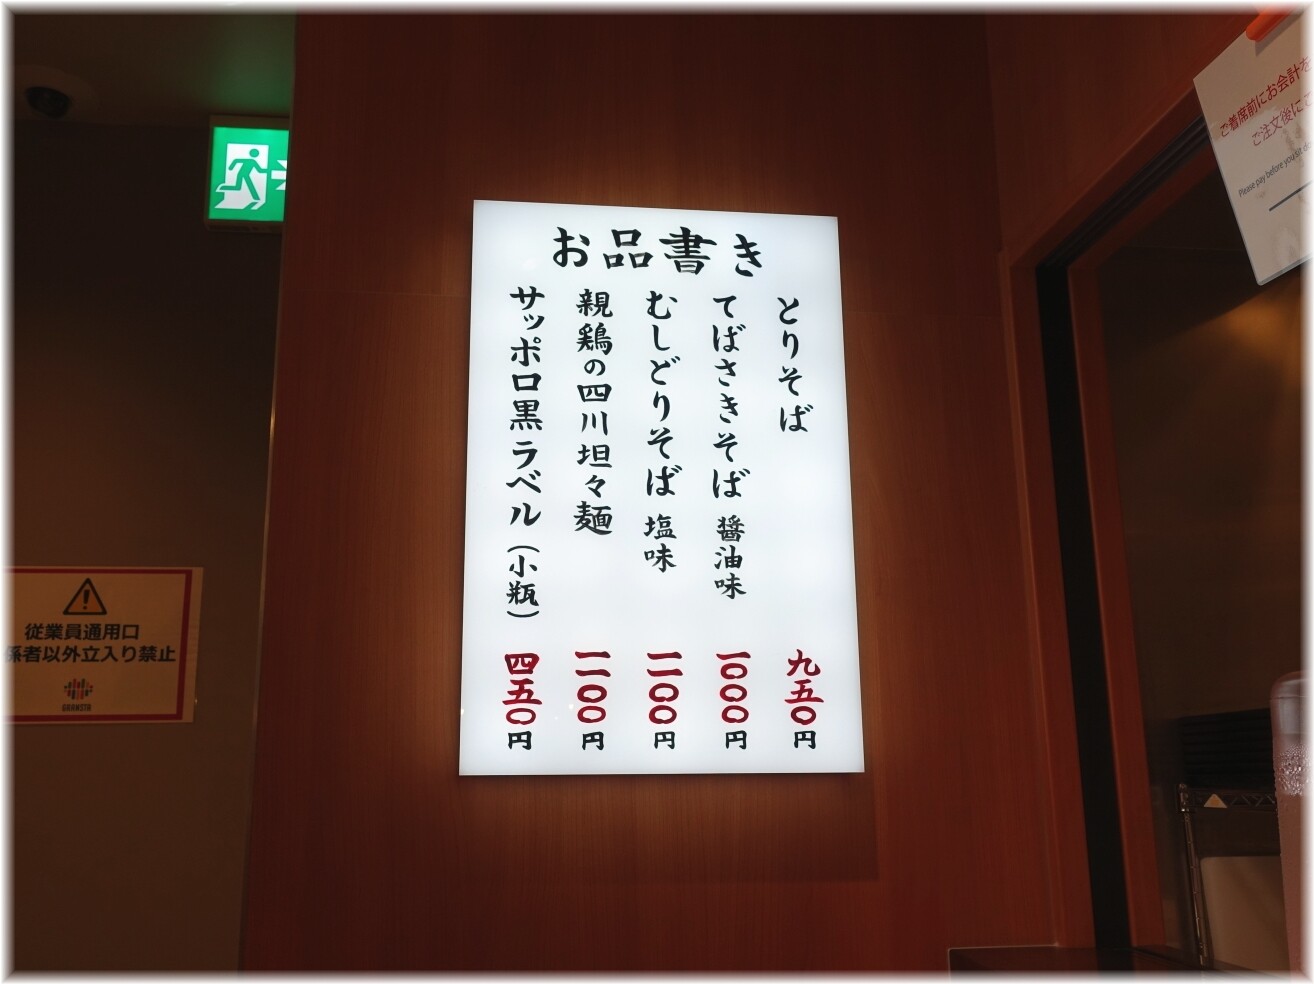 お品書き
とりそば 九五〇円
てばさきそば 醤油味 一〇〇〇円
むしどりそば 塩味 一一〇〇円
親鶏の四川坦々麺 一一〇〇円
サッポロ黒ラベル(小瓶) 四五〇円
従業員通用口
係者以外立入り禁止
GRANSTA
ご着席前にお会計を
ご注文後に
Please pay before you sit